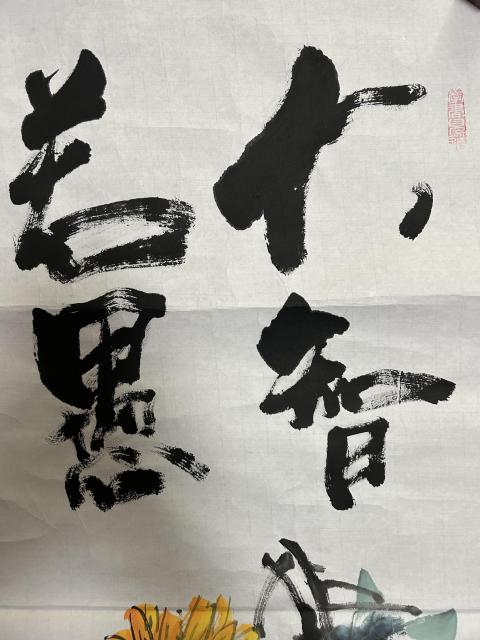 大智
若愚